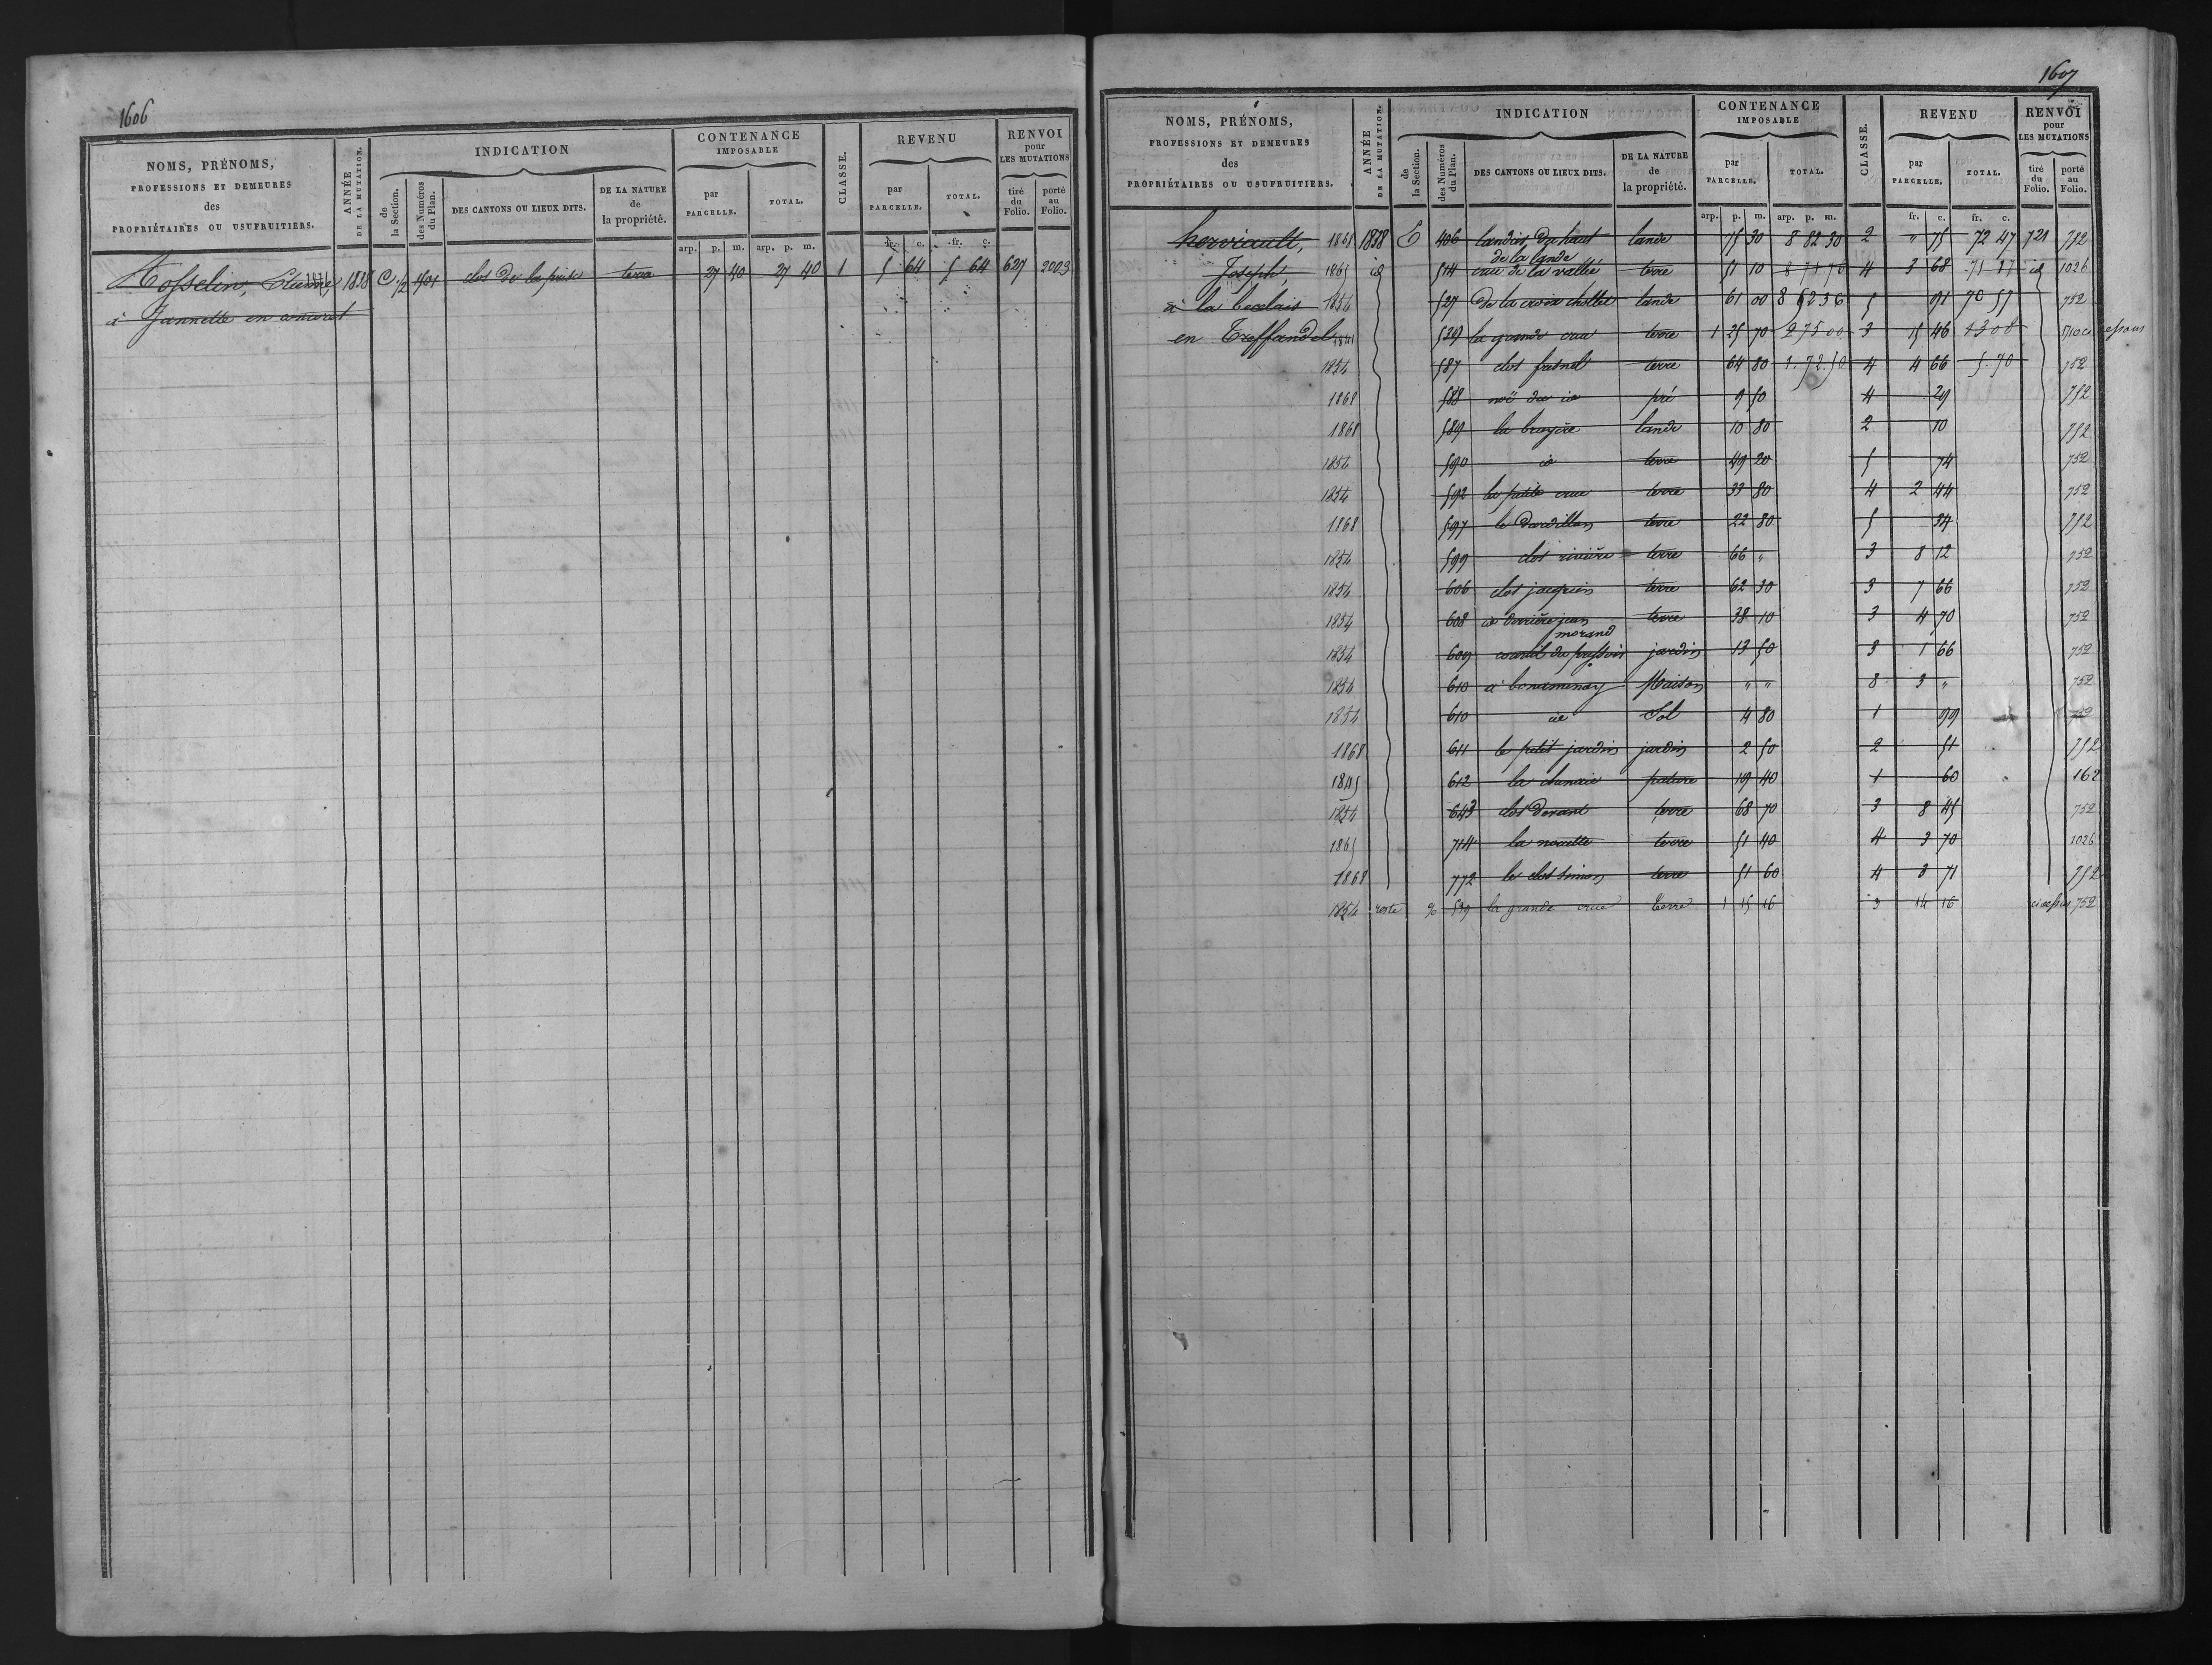 1606
NOMS, PRÉNOMS, PROFESSIONS ET DEMEURES des PROPRIÉTAIRES OU USUFRUITIERS.
ANNÉE DE LA MUTATION.
INDICATION
de la Section.
des Numéros du Plan.
DES CANTONS OU LIEUX DITS.
DE LA NATURE de la propriété.
CONTENANCE IMPOSABLE
par PARCELLE.
TOTAL.
CLASSE.
REVENU
par PARCELLE.
TOTAL.
RENVOI pour LES MUTATIONS
tiré du Folio.
porté au Folio.
arp. p. m. arp. p. m. fr. c. fr. c.
1838 C 401 clos de la terre 27 40 27 40 1 5 64 5 64 627 2003
à Jannette en
1607
NOMS, PRÉNOMS, PROFESSIONS ET DEMEURES des PROPRIÉTAIRES OU USUFRUITIERS.
ANNÉE DE LA MUTATION.
INDICATION
de la Section.
des Numéros du Plan.
DES CANTONS OU LIEUX DITS.
DE LA NATURE de la propriété.
CONTENANCE IMPOSABLE
par PARCELLE.
TOTAL.
CLASSE.
REVENU
par PARCELLE.
TOTAL.
RENVOI pour LES MUTATIONS
tiré du Folio.
porté au Folio.
arp. p. m. arp. p. m. fr. c. fr. c.
herviault, 1868 1838 E 406 landier du haut lande 75 30 8 82 30 2 " 75 72 47 721 752
de la lande
Joseph, 1865 id 514 crue de la vallée terre 51 10 4 3 68 id 1026
à la 1854 527 De la croix chollet lande 61 00 5 91 70 57 752
en Treffendel 1841 539 la grande crue terre 1 25 70 2 75 00 3 15 46
1854 587 clos fresnel terre 64 80 1.72.50 4 4 66 5.70 752
1868 588 noë du id pré 9 50 4 29 752
1868 589 la bruyère lande 10 80 2 10 752
1854 590 id terre 49 20 5 74 752
1854 592 la petite crue terre 33 80 4 2 44 752
1868 597 le terre 22 80 5 34 752
1854 599 clos rivière terre 66 " 3 8 12 752
1854 606 clos jacquin terre 62 30 3 7 66 752
1854 608 derrière jean terre 38 10 3 4 70 752
morand
1854 609 courtil du pressoir jardin 13 50 3 1 66 752
1854 610 à Maison " " 8 3 " 752
1854 610 id Sol 4 80 1 99 752
1868 611 le petit jardin jardin 2 50 2 51 752
1845 612 la pature 19 40 1 60 162
1854 643 clos devant terre 68 70 3 8 45 752
1865 714 la nouette terre 51 40 4 3 70 1026
1868 772 le clos simon terre 51 60 4 3 71 752
1854 reste % 539 la grande crue terre 1 15 16 3 14 16 752